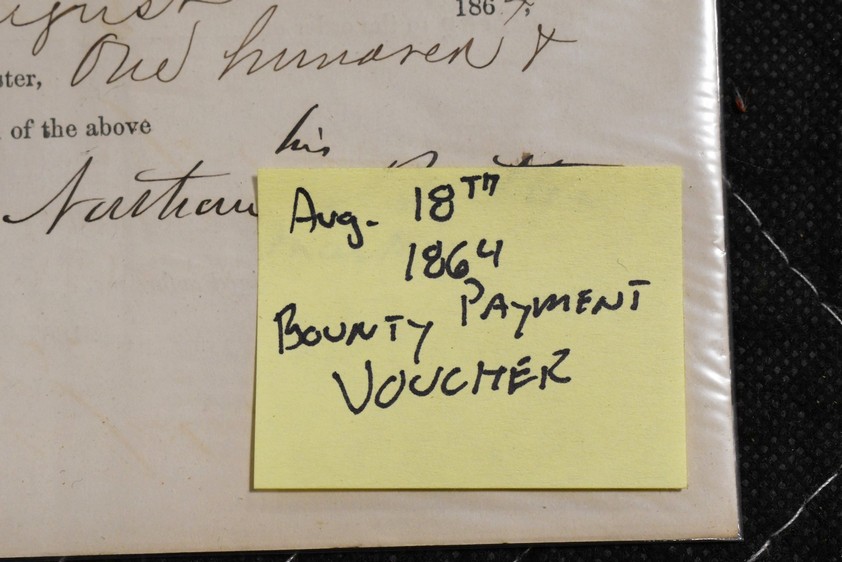 August 186
ster, One hundred &
of the above
his
Nathan
Aug. 18TH
1864
BOUNTY PAYMENT
VOUCHER